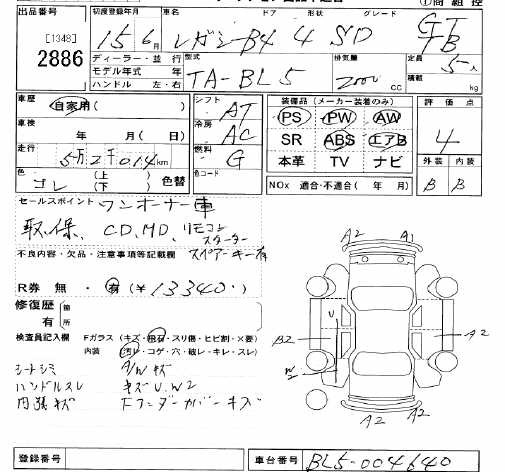 出品番号 初度登録年月 車名 ドア 形状 グレード
[1348] 15年 6月 レガシーB4 4 SD GT
2886 TB
ディーラー・並 行 型式 排気量 定員 5人
モデル年式 年 TA-BL5 2000cc 積載 kg
ハンドル 左・右
車歴 自家用( ) シフト AT 装備品 (メーカー装着のみ) 評価点
PS PW AW
車検 年 月(日) 冷房 AC SR ABS エアB 4
走行 5万2千014km 燃料 G 本革 TV ナビ 外装 内装
色 ゴレ (上) (下) 色替 色コード NOx 適合・不適合( 年 月) B B
セールスポイント ワンオーナー車
取.保. CD,MD, リモコンスターター
不良内容・欠品・注意事項等記載欄 スペアーキー有
R券 無・有(¥13340)
修復歴 箇
有 所
検査員記入欄 Fガラス (キズ・飛石・スリ傷・ヒビ割・×要)
内装 (汚レ・コゲ・穴・破レ・キレ・スレ)
シートシミ A/Wキズ
ハンドルスレ キズU.W2
内張キズ Fフンダーカバーキズ
A2 A1
U
B2 A2
W2
A2 A2
登録番号 車台番号 BL5-004640